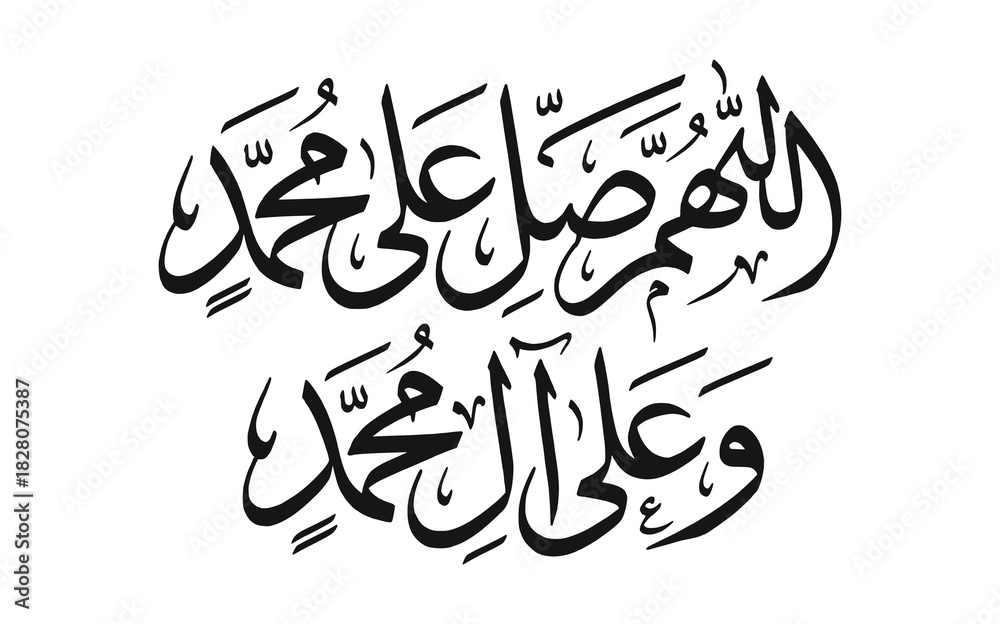 اللَّهُمَّ صَلِّ عَلَى مُحَمَّدٍ
وَعَلَى آلِ مُحَمَّدٍ
Adobe Stock | #1828075387